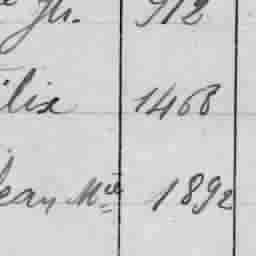 Jh. 912
ilix 1468
Jean Mie 1892